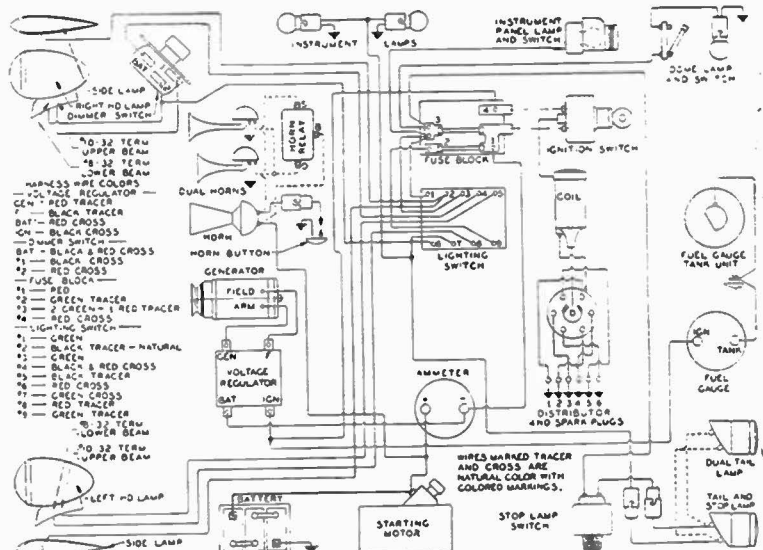 INSTRUMENT LAMPS
INSTRUMENT
PANEL LAMP
AND SWITCH
DOME LAMP
AND SWITCH
BAT
SIDE LAMP
RIGHT HD LAMP
DIMMER SWITCH
10-32 TERM
UPPER BEAM
8-32 TERM
LOWER BEAM
HARNESS WIRE COLORS
VOLTAGE REGULATOR
GEN - RED TRACER
F - BLACK TRACER
BAT - RED CROSS
IGN - BLACK CROSS
DIMMER SWITCH
BAT - BLACK & RED CROSS
*1 - BLACK CROSS
*2 - RED CROSS
FUSE BLOCK
*1 - RED
*2 - GREEN TRACER
*3 - 2 GREEN - 1 RED TRACER
*4 - RED CROSS
LIGHTING SWITCH
*1 - GREEN
*2 - BLACK TRACER - NATURAL
*3 - GREEN
*4 - BLACK & RED CROSS
*5 - BLACK TRACER
*6 - RED CROSS
*7 - GREEN CROSS
*8 - RED TRACER
*9 - GREEN TRACER
8-32 TERM
LOWER BEAM
10-32 TERM
UPPER BEAM
LEFT HD LAMP
SIDE LAMP
DUAL HORNS
HORN
RELAY
HORN
HORN BUTTON
GENERATOR
FIELD
ARM
GEN F
VOLTAGE
REGULATOR
BAT IGN
BATTERY
STARTING
MOTOR
AMMETER
+ -
3
2
4
FUSE BLOCK
IGNITION SWITCH
1 2 3 4 5
6 7 8 9
LIGHTING
SWITCH
COIL
1 2 3 4 5 6
DISTRIBUTOR
AND SPARK PLUGS
WIRES MARKED TRACER
AND CROSS ARE
NATURAL COLOR WITH
COLORED MARKINGS.
STOP LAMP
SWITCH
FUEL GAUGE
TANK UNIT
IGN
TANK
FUEL
GAUGE
DUAL TAIL
LAMP
TAIL AND
STOP LAMP